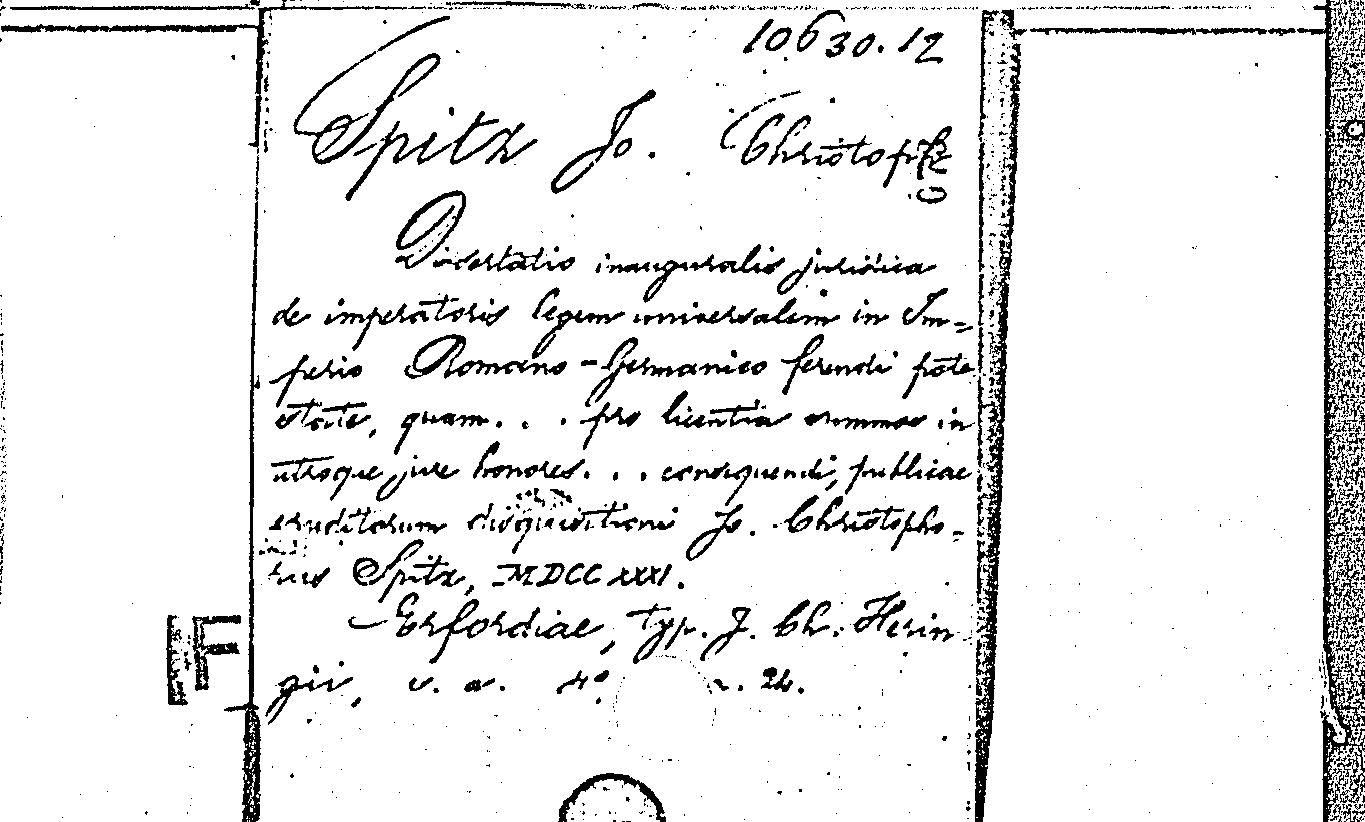 10630.12
Spitz Jo. Christoph
Dissertatio inauguralis juridica
de imperatoris legem universalem in Im-
perio Romano-Germanico ferendi pote
state, quam... pro licentia summos in
utroque jure honores... consequendi, publicae
eruditorum disquisitioni Jo. Christopho-
rus Spitz, MDCCXXXI.
Erfordiae, typ. J. Ch. Herin
gii, s. a. 4° 24.
F